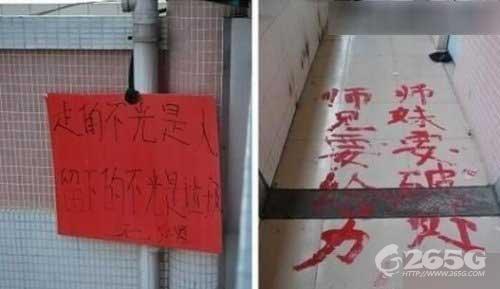 走的不光是人
留下的不光是
师妹要破处
师兄要给力
265G
HTTP://WWW.265G.COM